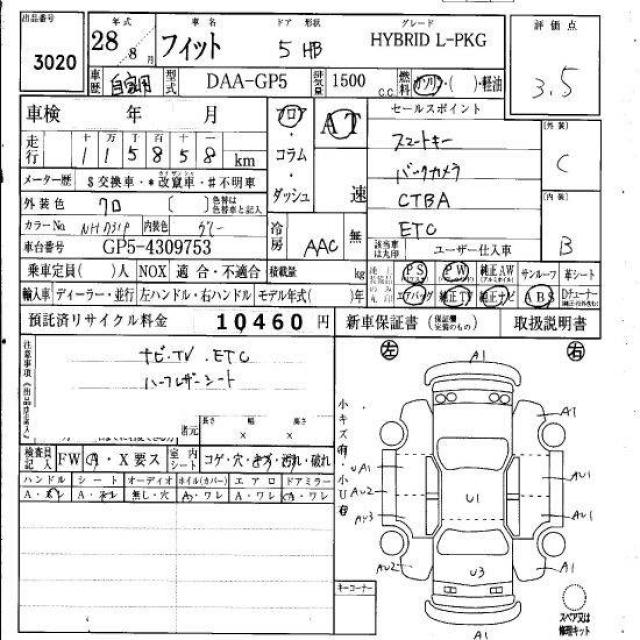 出品番号 年式 車名 ドア 形状 グレード 評価点
3020 28年 8月 フィット 5 HB HYBRID L-PKG 3.5
車歴 自家用 型式 DAA-GP5 排気量 1500 c.c. 燃料 ガソリン・( )・軽油
車検 年 月 フロア・コラム・ダッシュ AT 速 セールスポイント
走行 十 万 千 百 十 一
1 1 5 8 5 8 km
スマートキー
バックカメラ
CTBA
ETC
[外装] C
[内装] B
メーター歴 $交換車・*改竄車・#不明車
外装色 クロ ( ) 色替は色替車と記入
カラーNo. NH731P 内装色 グレー
車台番号 GP5-4309753
冷房 AAC 無 該当車は丸印 ユーザー仕入車
乗車定員( )人 NOX 適合・不適合 積載量 kg
PS PW 純正AW サンルーフ 革シート
輸入車 ディーラー・並行 左ハンドル・右ハンドル モデル年式( )年
エアバッグ 純正TV 純正ナビ ABS Dチューナー
預託済リサイクル料金 10460 円 新車保証書 (保証欄記載のもの) 取扱説明書
注意事項
ナビ・TV.ETC
ハーフレザーシート
諸元 長さ × 幅 × 高さ
検査員記入 FW A・X要ス 室内シート コゲ・穴・キズ・汚れ・破れ
ハンドル シート オーディオ ホイル(カバー) エアロ ドアミラー
A・スレ A・スレ 無し・穴 A・ワレ A・ワレ A・ワレ
左 右
小キズ有・小U有
A1
A1
UA1 AU1
AU2 U1
AU3 AU1
AU2 U3 A1
A1
キーコーナー
スペア又は修理キット